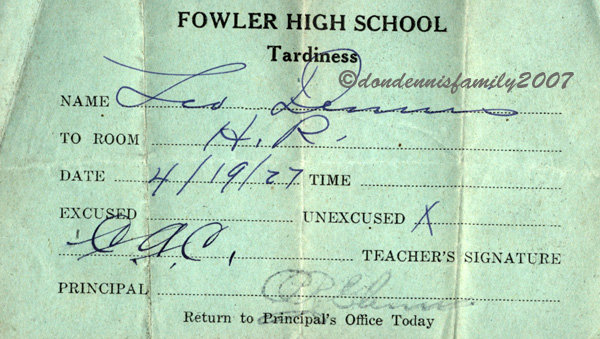 FOWLER HIGH SCHOOL
Tardiness
©dondennisfamily2007
NAME Leo Dennis
TO ROOM H. R.
DATE 4/19/27 TIME
EXCUSED UNEXCUSED X
C.A.C. TEACHER'S SIGNATURE
PRINCIPAL
Return to Principal's Office Today